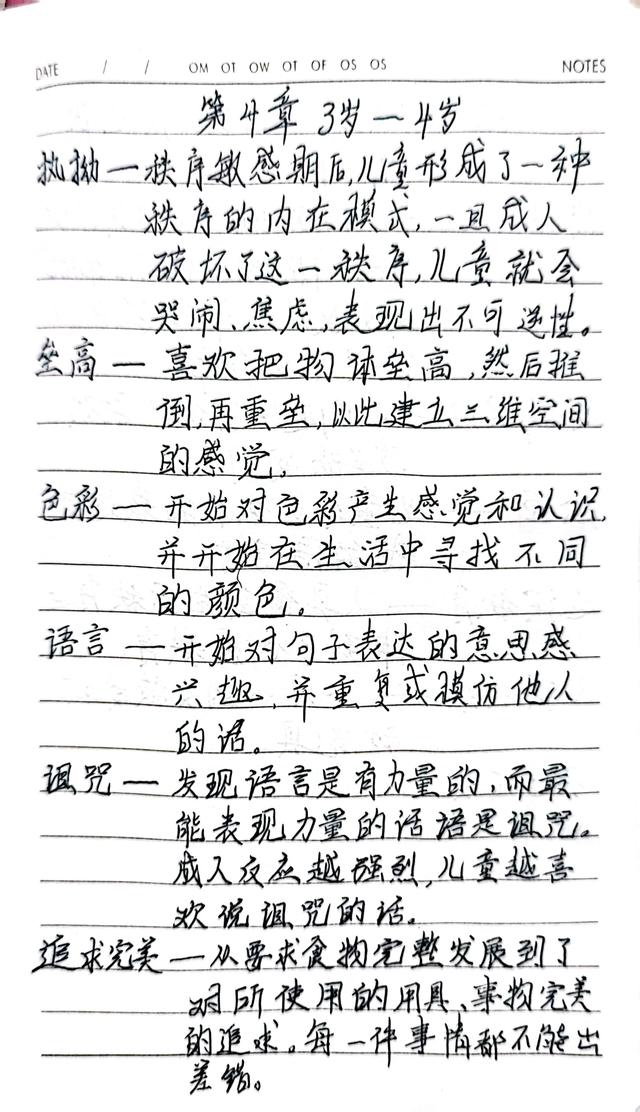 DATE / / OM OT OW OT OF OS OS NOTES
第4章 3岁—4岁
执拗—秩序敏感期后,儿童形成了一种
秩序的内在模式,一旦成人
破坏了这一秩序,儿童就会
哭闹、焦虑,表现出不可逆性。
垒高—喜欢把物体垒高,然后推
倒,再重垒,以此建立三维空间
的感觉。
色彩—开始对色彩产生感觉和认识,
并开始在生活中寻找不同
的颜色。
语言—开始对句子表达的意思感
兴趣,并重复或模仿他人
的话。
诅咒—发现语言是有力量的,而最
能表现力量的话语是诅咒。
成人反应越强烈,儿童越喜
欢说诅咒的话。
追求完美—从要求食物完整发展到了
对所使用的用具、事物完美
的追求。每一件事情都不能出
差错。